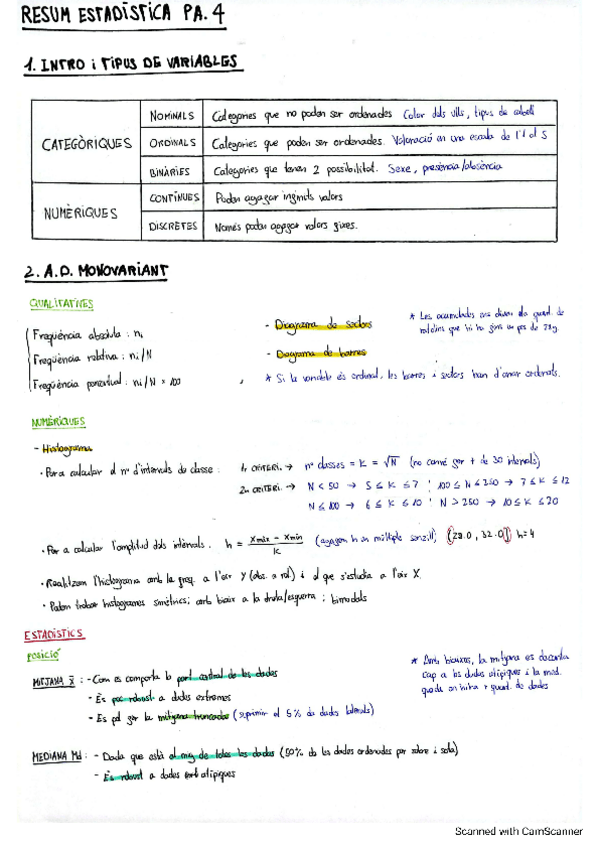 RESUM ESTADÍSTICA PA. 4
1. INTRO i TIPUS DE VARIABLES
CATEGÒRIQUES
NOMINALS Categories que no poden ser ordenades Color dels ulls, tipus de cabell
ORDINALS Categories que poden ser ordenades. Valoració en una escala de l'1 al 5
BINÀRIES Categories que tenen 2 possibilitat. Sexe, presència/absència
NUMÈRIQUES
CONTÍNUES Poden agafar infinits valors
DISCRETES Només poden agafar valors fixes.
2. A.D. MONOVARIANT
QUALITATIVES
Freqüència absoluta : ni
Freqüència relativa : ni/N
Freqüència percentual : ni/N × 100
- Diagrama de sectors
- Diagrama de barres
* Les acumulades ens diuen la quant. de
que hi ha fins un pes de 28g
* Si la variable és ordinal, les barres i sectors han d'anar ordenats.
NUMÈRIQUES
- Histograma
· Per a calcular el nº d'intervals de classe :
1r CRITERI. → nº classes = K = √N (no convé fer + de 30 intervals)
2n CRITERI. → N < 50 → 5 ≤ K ≤ 7 ¦ 100 ≤ N ≤ 250 → 7 ≤ K ≤ 12
N ≤ 100 → 6 ≤ K ≤ 10 ¦ N > 250 → 10 ≤ K ≤ 20
· Per a calcular l'amplitud dels intervals. h = Xmàx - Xmín / K (agafem h un múltiple senzill) [28.0, 32.0) h=4
· Realitzem l'histograma amb la freq. a l'eix Y (abs. o rel.) i el que s'estudia a l'eix X.
· Podem trobar histogrames simètrics; amb biaix a la dreta/esquerra ; bimodals
ESTADÍSTICS
POSICIÓ
MITJANA x̄ : - Com es comporta la part central de les dades
- És poc robust a dades extremes
- Es pot fer la mitjana truncada (suprimir el 5% de dades laterals)
* Amb biaixos, la mitjana es decanta
cap a les dades atípiques i la med.
queda on hi ha + quant. de dades
MEDIANA Md : - Dada que està al mig de totes les dades (50% de les dades ordenades per sobre i sota)
- És robust a dades atípiques
Scanned with CamScanner